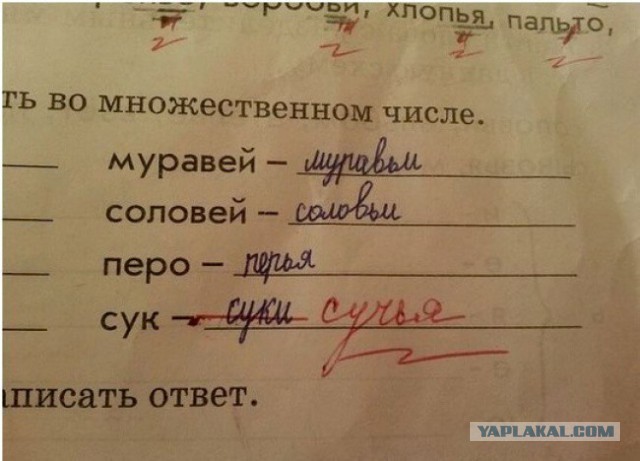 воробьи, хлопья, пальто,
ть во множественном числе.
муравей – муравьи
соловей – соловьи
перо – перья
сук – суки сучья
аписать ответ.
YAPLAKAL.COM